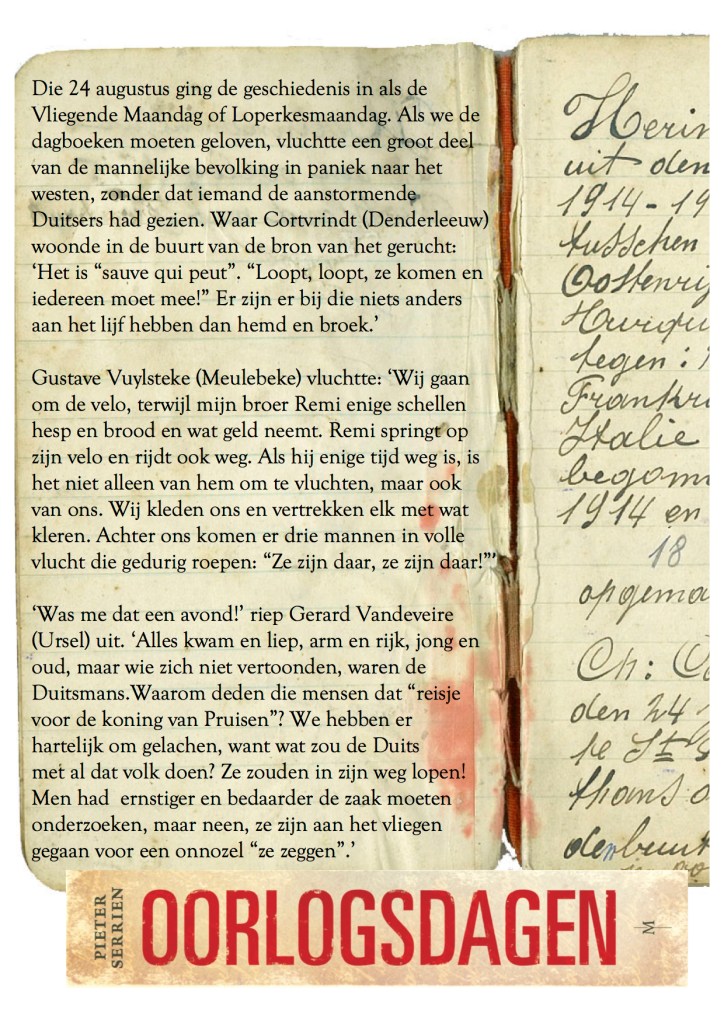 Die 24 augustus ging de geschiedenis in als de
Vliegende Maandag of Loperkesmaandag. Als we de
dagboeken moeten geloven, vluchtte een groot deel
van de mannelijke bevolking in paniek naar het
westen, zonder dat iemand de aanstormende
Duitsers had gezien. Waar Cortvrindt (Denderleeuw)
woonde in de buurt van de bron van het gerucht:
‘Het is “sauve qui peut”. “Loopt, loopt, ze komen en
iedereen moet mee!” Er zijn er bij die niets anders
aan het lijf hebben dan hemd en broek.’
Gustave Vuylsteke (Meulebeke) vluchtte: ‘Wij gaan
om de velo, terwijl mijn broer Remi enige schellen
hesp en brood en wat geld neemt. Remi springt op
zijn velo en rijdt ook weg. Als hij enige tijd weg is, is
het niet alleen van hem om te vluchten, maar ook
van ons. Wij kleden ons en vertrekken elk met wat
kleren. Achter ons komen er drie mannen in volle
vlucht die gedurig roepen: “Ze zijn daar, ze zijn daar!”’
‘Was me dat een avond!’ riep Gerard Vandeveire
(Ursel) uit. ‘Alles kwam en liep, arm en rijk, jong en
oud, maar wie zich niet vertoonden, waren de
Duitsmans.Waarom deden die mensen dat “reisje
voor de koning van Pruisen”? We hebben er
hartelijk om gelachen, want wat zou de Duits
met al dat volk doen? Ze zouden in zijn weg lopen!
Men had ernstiger en bedaarder de zaak moeten
onderzoeken, maar neen, ze zijn aan het vliegen
gegaan voor een onnozel “ze zeggen”.’
Herin
uit den
1914-19
tusschen
Oostenrij
tegen:
Frankr
Italie
begonn
1914 en
18
opgema
Ch:
den 24
te St
thans
denbuur
PIETER
SERRIEN
OORLOGSDAGEN
M